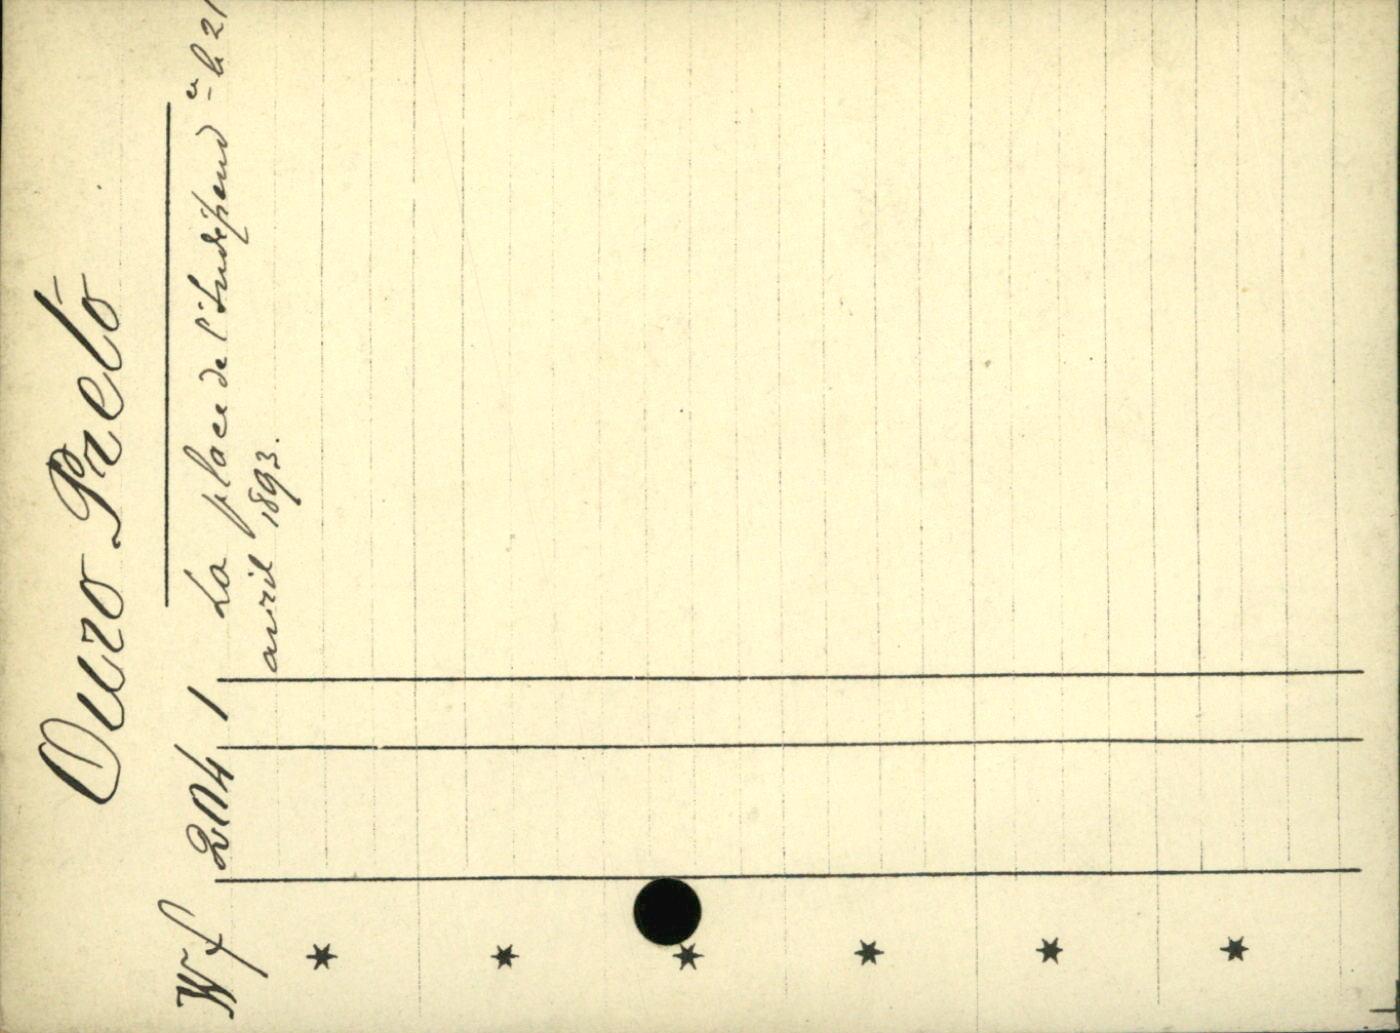 Ouro Preto
Wf 204 1 La place de l'Indépend ce le 21
avril 1893.